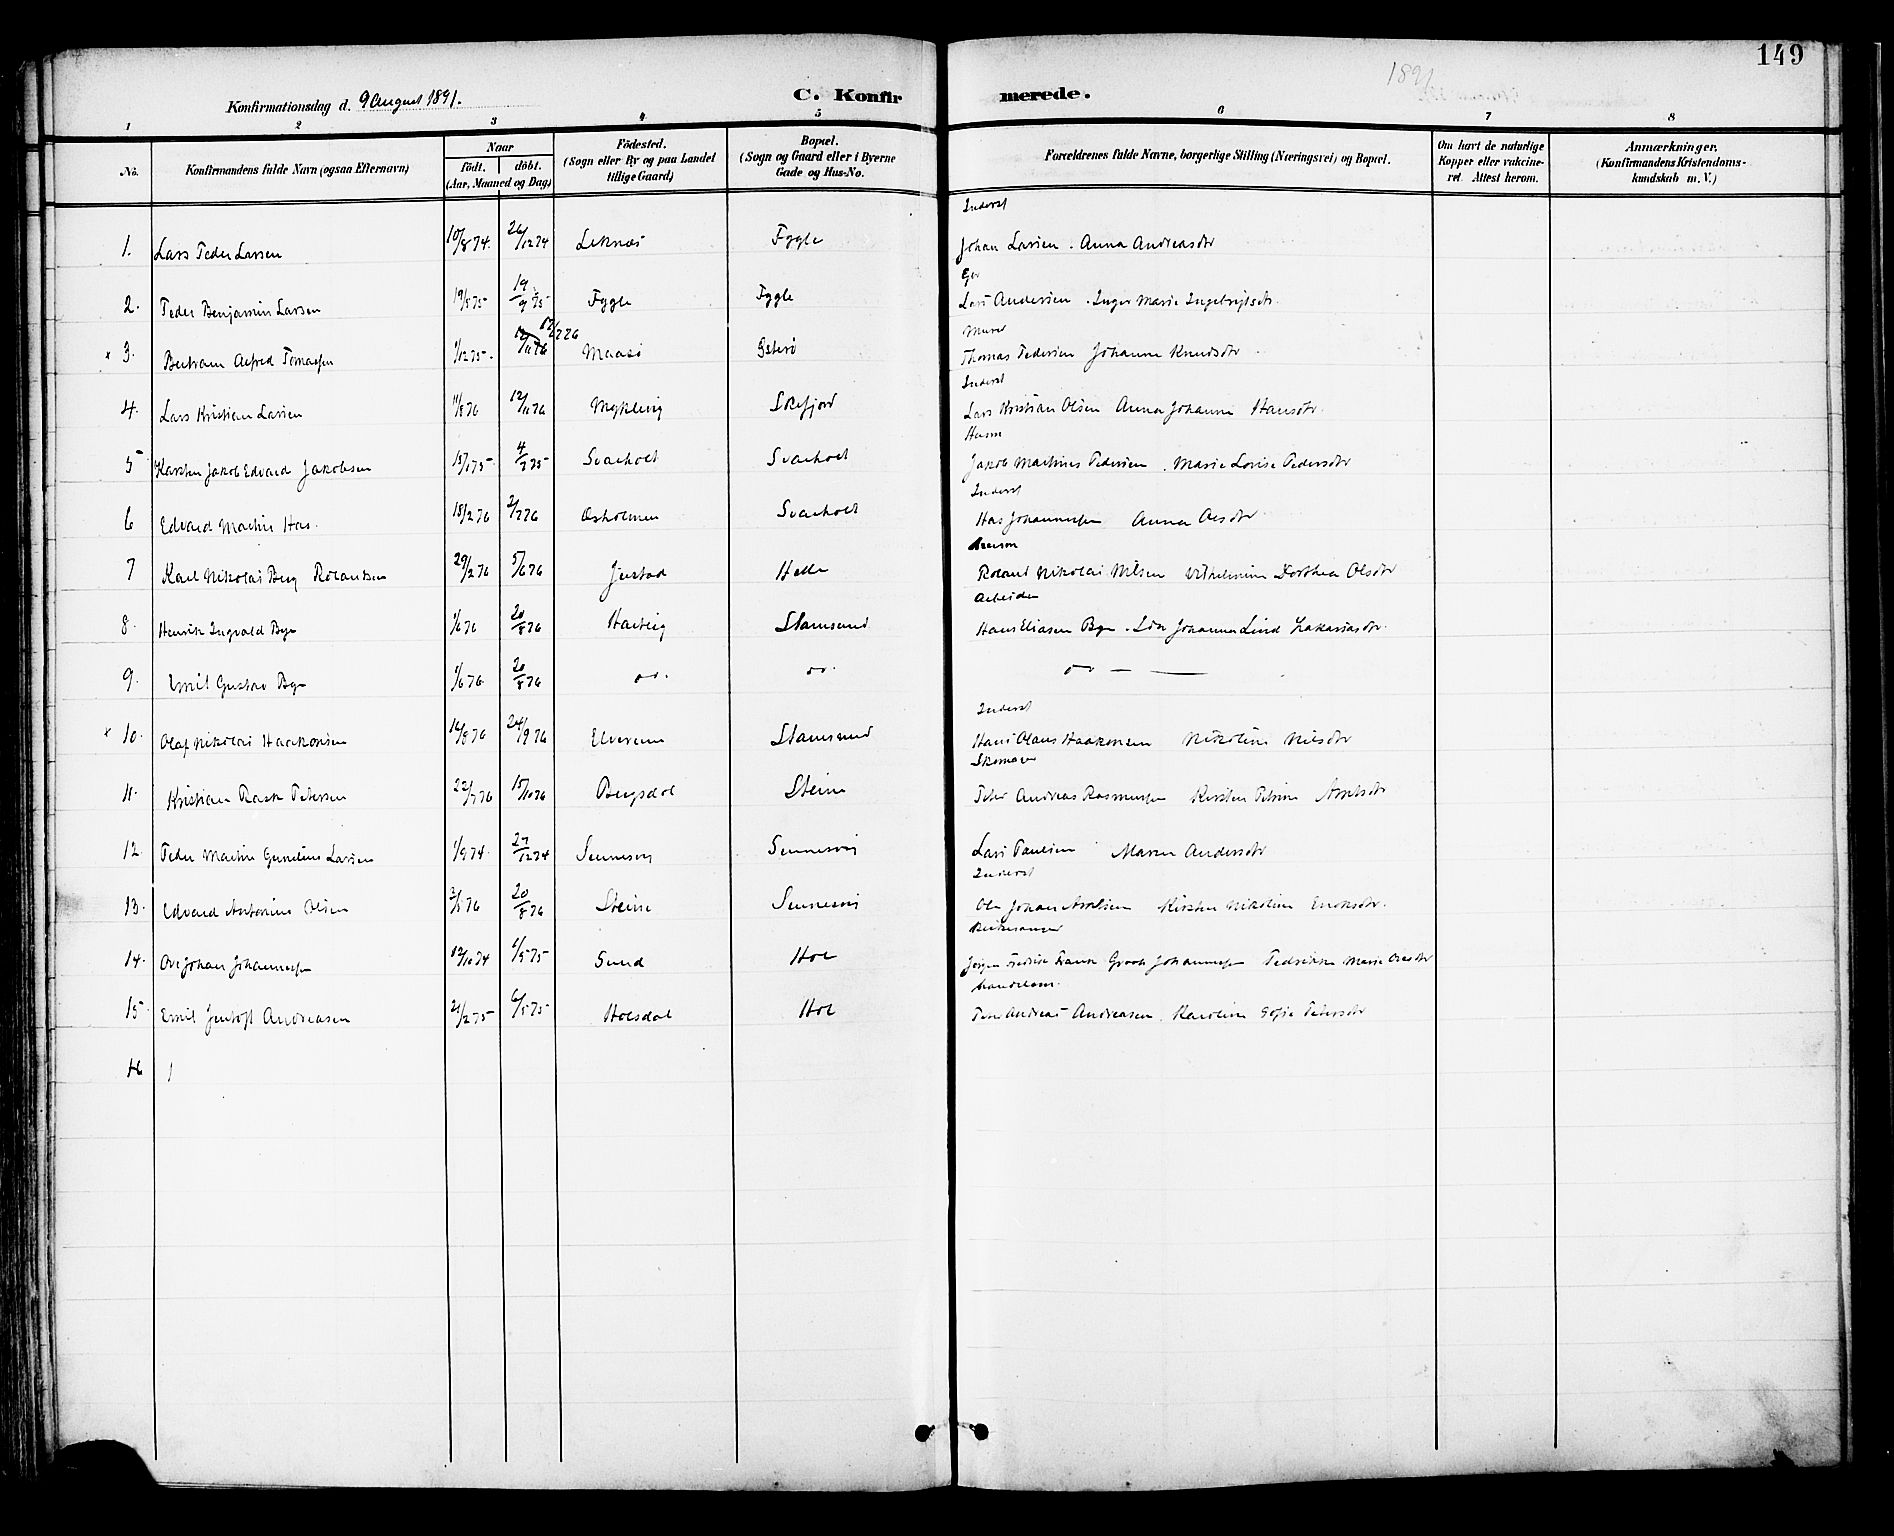 149
1891
Konfirmationsdag d. 9 August 1891.
C. Konfir merede.
1 2 3 4 5 6 7 8
No. Konfirmandens fulde Navn (ogsaa Efternavn) Naar födt. döbt. (Aar, Maaned og Dag) Födested. (Sogn eller By og paa Landet tillige Gaard) Bopæl. (Sogn og Gaard eller i Byerne Gade og Hus-No. Forældrenes fulde Navne, borgerlige Stilling (Næringsvei) og Bopæl. Om havt de naturlige Kopper eller vakcineret. Attest herom. Anmærkninger. (Konfirmandens Kristendomskundskab m. V.)
Inderst
1. Lars Peder Larsen 10/8 74. 26/12 74 Leknæs Fygle Johan Larsen . Anna Andreasdtr
Gjr
2. Peder Benjamin Larsen 19/5 75 19/9 75 Fygle Fygle Lars Andersen . Inger Marie Ingebrigtsdtr.
Murer
x 3. Bertram Alfred Tomassen 1/12 75. 12/2 76 Maasö Österö Thomas Pedersen Johanna Knudsdtr
Inderst
4. Lars Kristian Larsen 11/8 76 12/11 76 Myklevig Skifjord Lars Kristian Olsen Anna Johanna Hansdtr.
Husm
5 Karsten Jakob Edvard Jakobsen 15/1 75. 4/7 75 Svarholt Svarholt Jakob Martines Pedersen . Marie Lovise Pedersdtr
Inderst
6 Edvard Martin Has. 18/2 76 2/7 76 Oxholmen Svarholt Has Johannessen Anna Olsdtr
7 Karl Nikolai Berg Rolandsen 29/2 76 5/6 76 Justad Helle Roland Nikolai Nilsen Vilhelmine Dorthea Olsdtr
Arbeider
8. Henrik Ingvald Bye 1/6 76 20/8 76 Hartvig Stamsund Hans Eliasen Bye . Ida Johanna Lind Zakariasdtr.
9. Emil Gustav Bye 1/6 76. 20/8 76 do. do. do — —
Inderst
x 10. Olaf Nikolai Haakonsen 16/8 76 24/9 76 Elverum Stamsund Hans Olaus Haakonsen Nikoline Nilsdtr
Skomager
11. Kristian Rask Petersen 22/7 76 15/10 76 Bergsdal Steine Peter Andreas Rasmussen Kirsten Petrine Arntsdtr
12. Peder Martin Gunelius Larsen 1/9 74. 27/12 74 Sennesvig Sennesvig Lars Paulsen Maren Andersdtr
Inderst
13. Edvard Antonius Olsen 3/5 76 20/8 76 Steine Sennesvig Ole Johan Arntsen Kirsten Nikoline Eriksdtr.
Kirkesanger
14. Ove Johan Johannessen 12/10 74 1/5 75 Sund Hol Jörgen Fredrik Frank Grooh Johannessen Pedrikke Marie Olesdtr
handelsm.
15. Emil Jentoft Andreasen 21/2 75 6/5 75 Holsdal Hol Peter Andreas Andreasen . Karoline Sofie Petersdtr
16